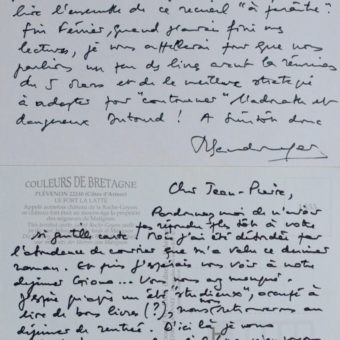 lire l'ensemble de ce recueil "à paraître".
Fin Février, quand j'aurai fini mes
lectures, je vous appellerai pour que nous
parlions un peu des livres avant la réunion
du 5 mars et de la meilleure stratégie
à adopter pour "contourner" l'adorable et
dangereux Dutourd ! A bientôt donc
COULEURS DE BRETAGNE
PLÉVENON 22240 (Côtes d'Armor)
LE FORT LA LATTE
Appelé autrefois château de la Roche-Goyon
Cher Jean-Pierre,
Pardonnez moi de n'avoir
pas répondu plus tôt à votre
si gentille carte ! Mais j'ai été débordée par
l'abondance de courrier que m'a valu ce dernier
roman. Et puis j'espérais vous voir à notre
déjeuner Giono... Vous nous avez manqué.
J'espère qu'après un été "studieux", occupé à
lire de bons livres (?), nous nous retrouverons au
déjeuner de rentrée. D'ici là, je vous